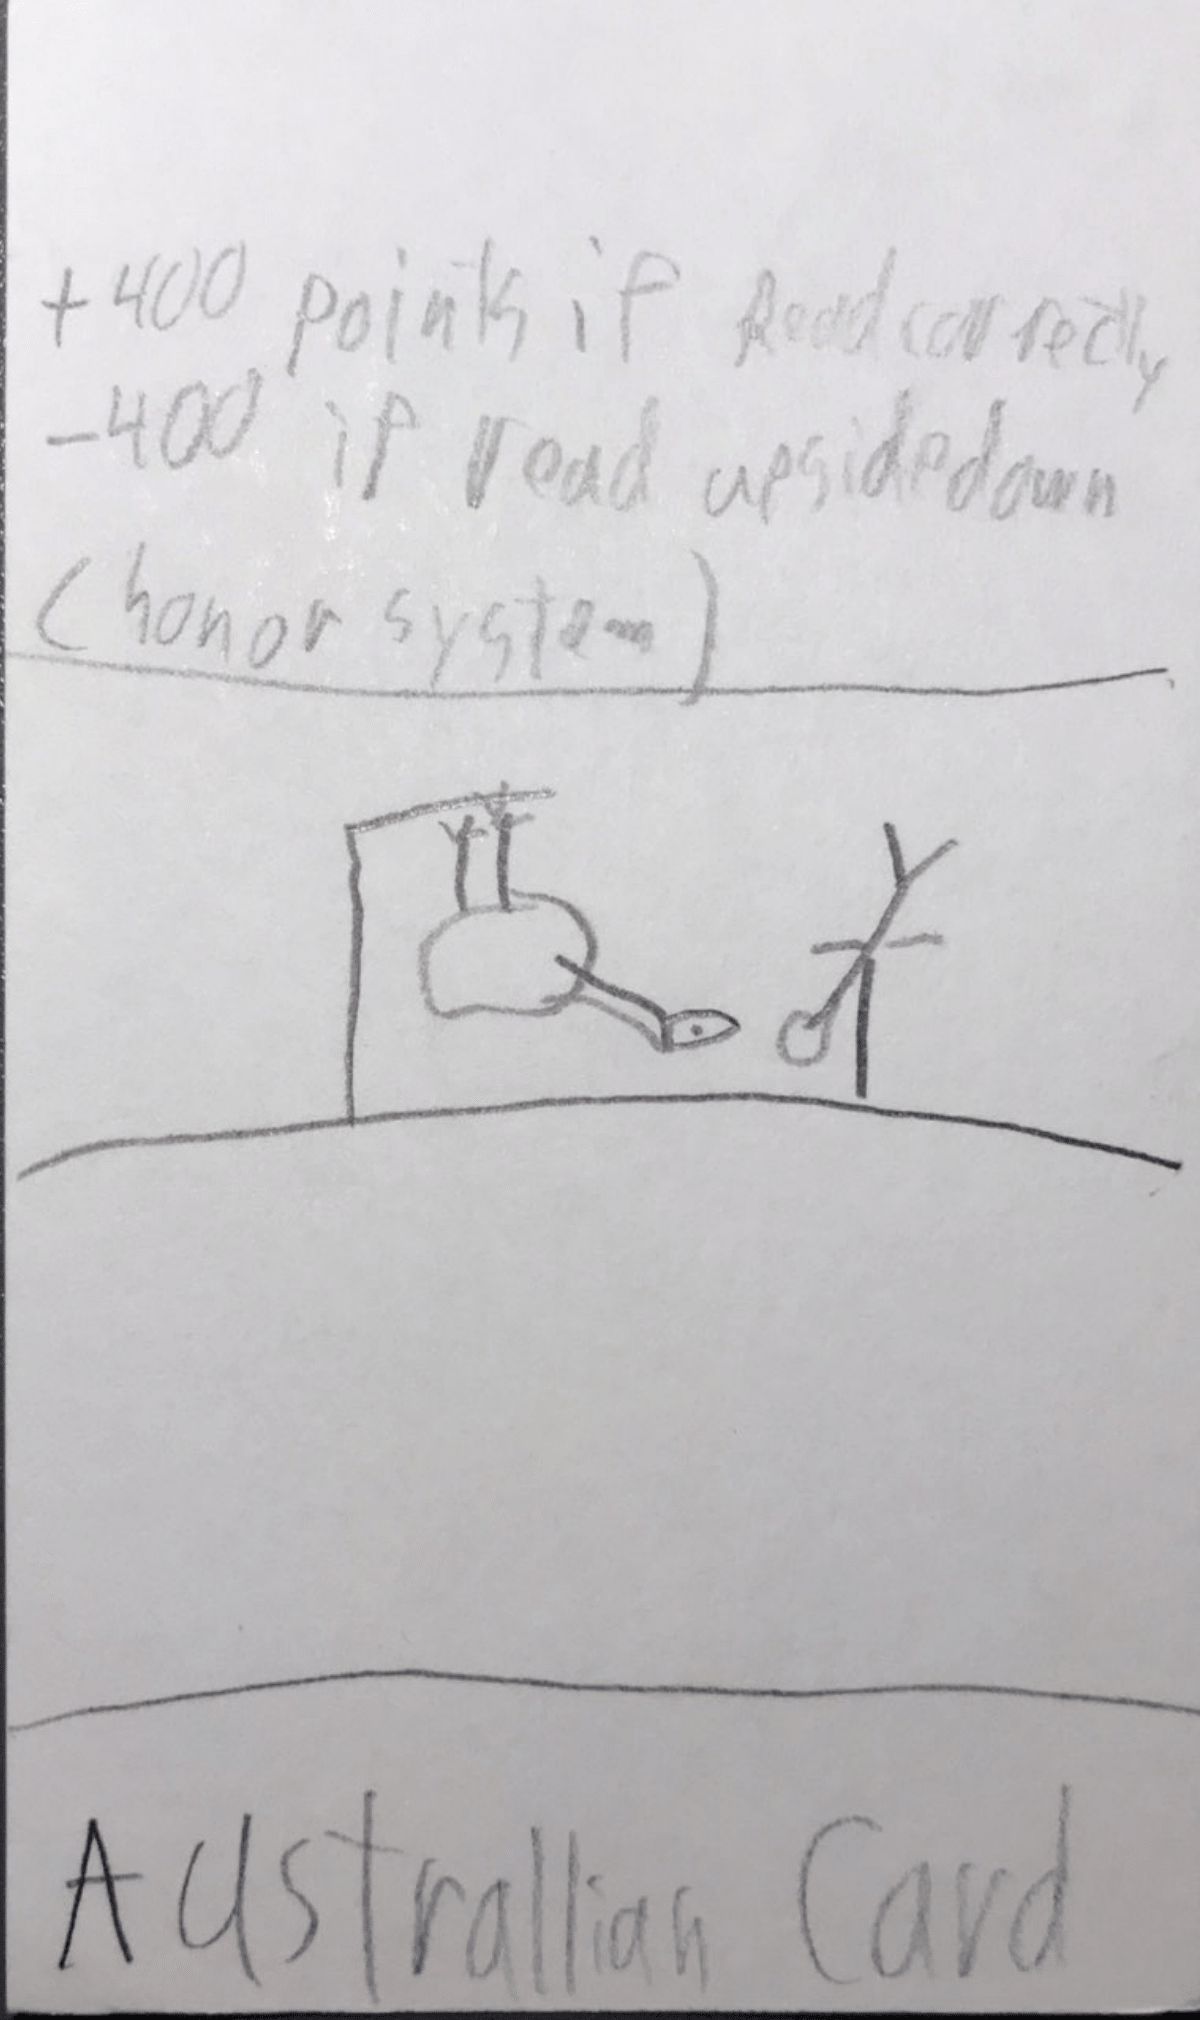 +400 points if Read correctly
-400 if read upsidedown
(honor system)
Australlian Card